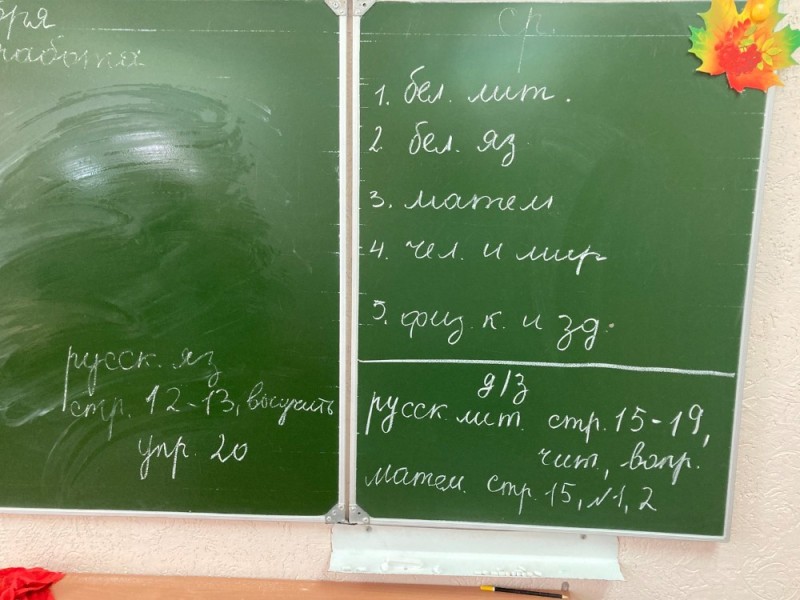 ср.
1. бел. лит.
2. бел. яз
3. матем
4. чел. и мир
5. физ. к. и зд.
русск. яз
стр. 12-13, выучить
упр. 20
д/з
русск. лит. стр. 15-19,
чит., вопр.
матем. стр. 15, №1, 2